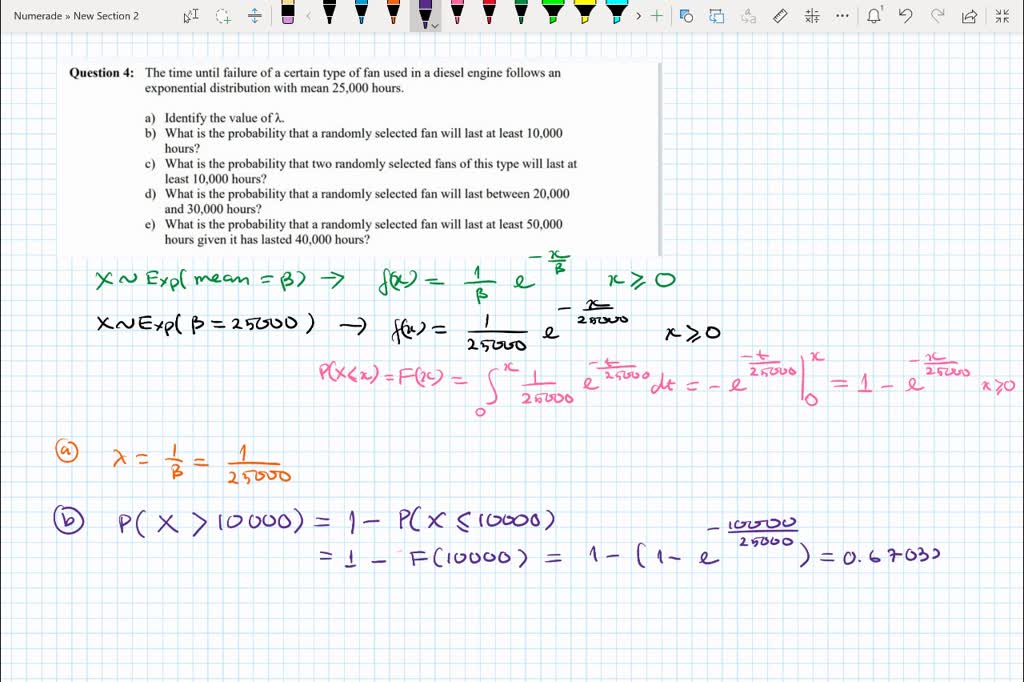 Numerade » New Section 2
Question 4: The time until failure of a certain type of fan used in a diesel engine follows an
exponential distribution with mean 25,000 hours.
a) Identify the value of λ.
b) What is the probability that a randomly selected fan will last at least 10,000
hours?
c) What is the probability that two randomly selected fans of this type will last at
least 10,000 hours?
d) What is the probability that a randomly selected fan will last between 20,000
and 30,000 hours?
e) What is the probability that a randomly selected fan will last at least 50,000
hours given it has lasted 40,000 hours?
X ~ Exp( mean = β ) → f(x) = 1/β e^{-x/β} x ≥ 0
X ~ Exp( β = 25000 ) → f(x) = 1/25000 e^{-x/25000} x ≥ 0
P(X≤x) = F(x) = ∫_0^x 1/25000 e^{-t/25000} dt = - e^{-t/25000} |_0^x = 1 - e^{-x/25000} x ≥ 0
(a) λ = 1/β = 1/25000
(b) P( X > 10000 ) = 1 - P( X ≤ 10000 )
= 1 - F(10000) = 1 - ( 1 - e^{-10000/25000} ) = 0.67032